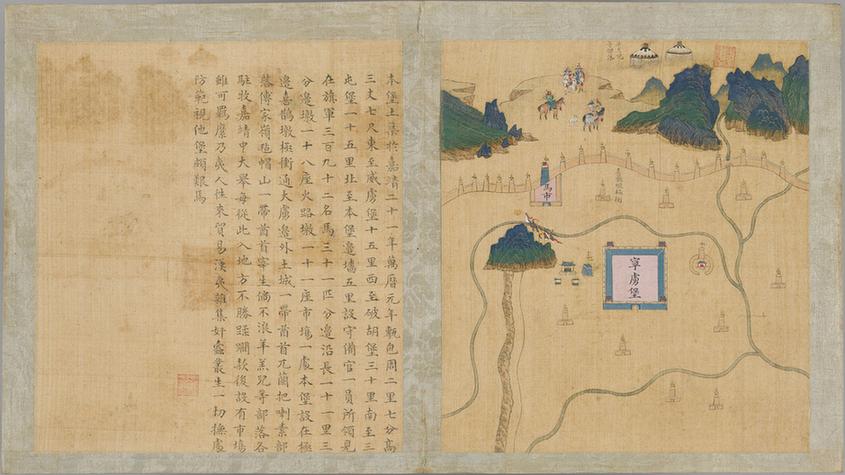 本堡土築於嘉靖二十一年萬曆元年甎包周二里七分高
三丈七尺東至威虜堡十五里西至破胡堡三十里南至三
屯堡一十五里北至本堡邊墻五里設守備官一員所領見
在旗軍三百九十二名馬三十一匹分邊沿長一十一里三
分邊墩一十八座火路墩一十一座市塲一處本堡設在極
邊喜鵲墩極衝通大虜邊外土城一帶酋首兀蘭把喇素部
落傅家嶺氊帽山一帶酋首宰生倘不浪羊羔兒等部落各
駐牧嘉靖中大舉每從此入地方不勝蹂躪欵後設有市塲
雖可羈縻乃夷人往來貿易漢夷雜集奸蠹叢生一切撫處
防範視他堡頗艱焉
喜鵲墩極衝
馬市
寧虜堡